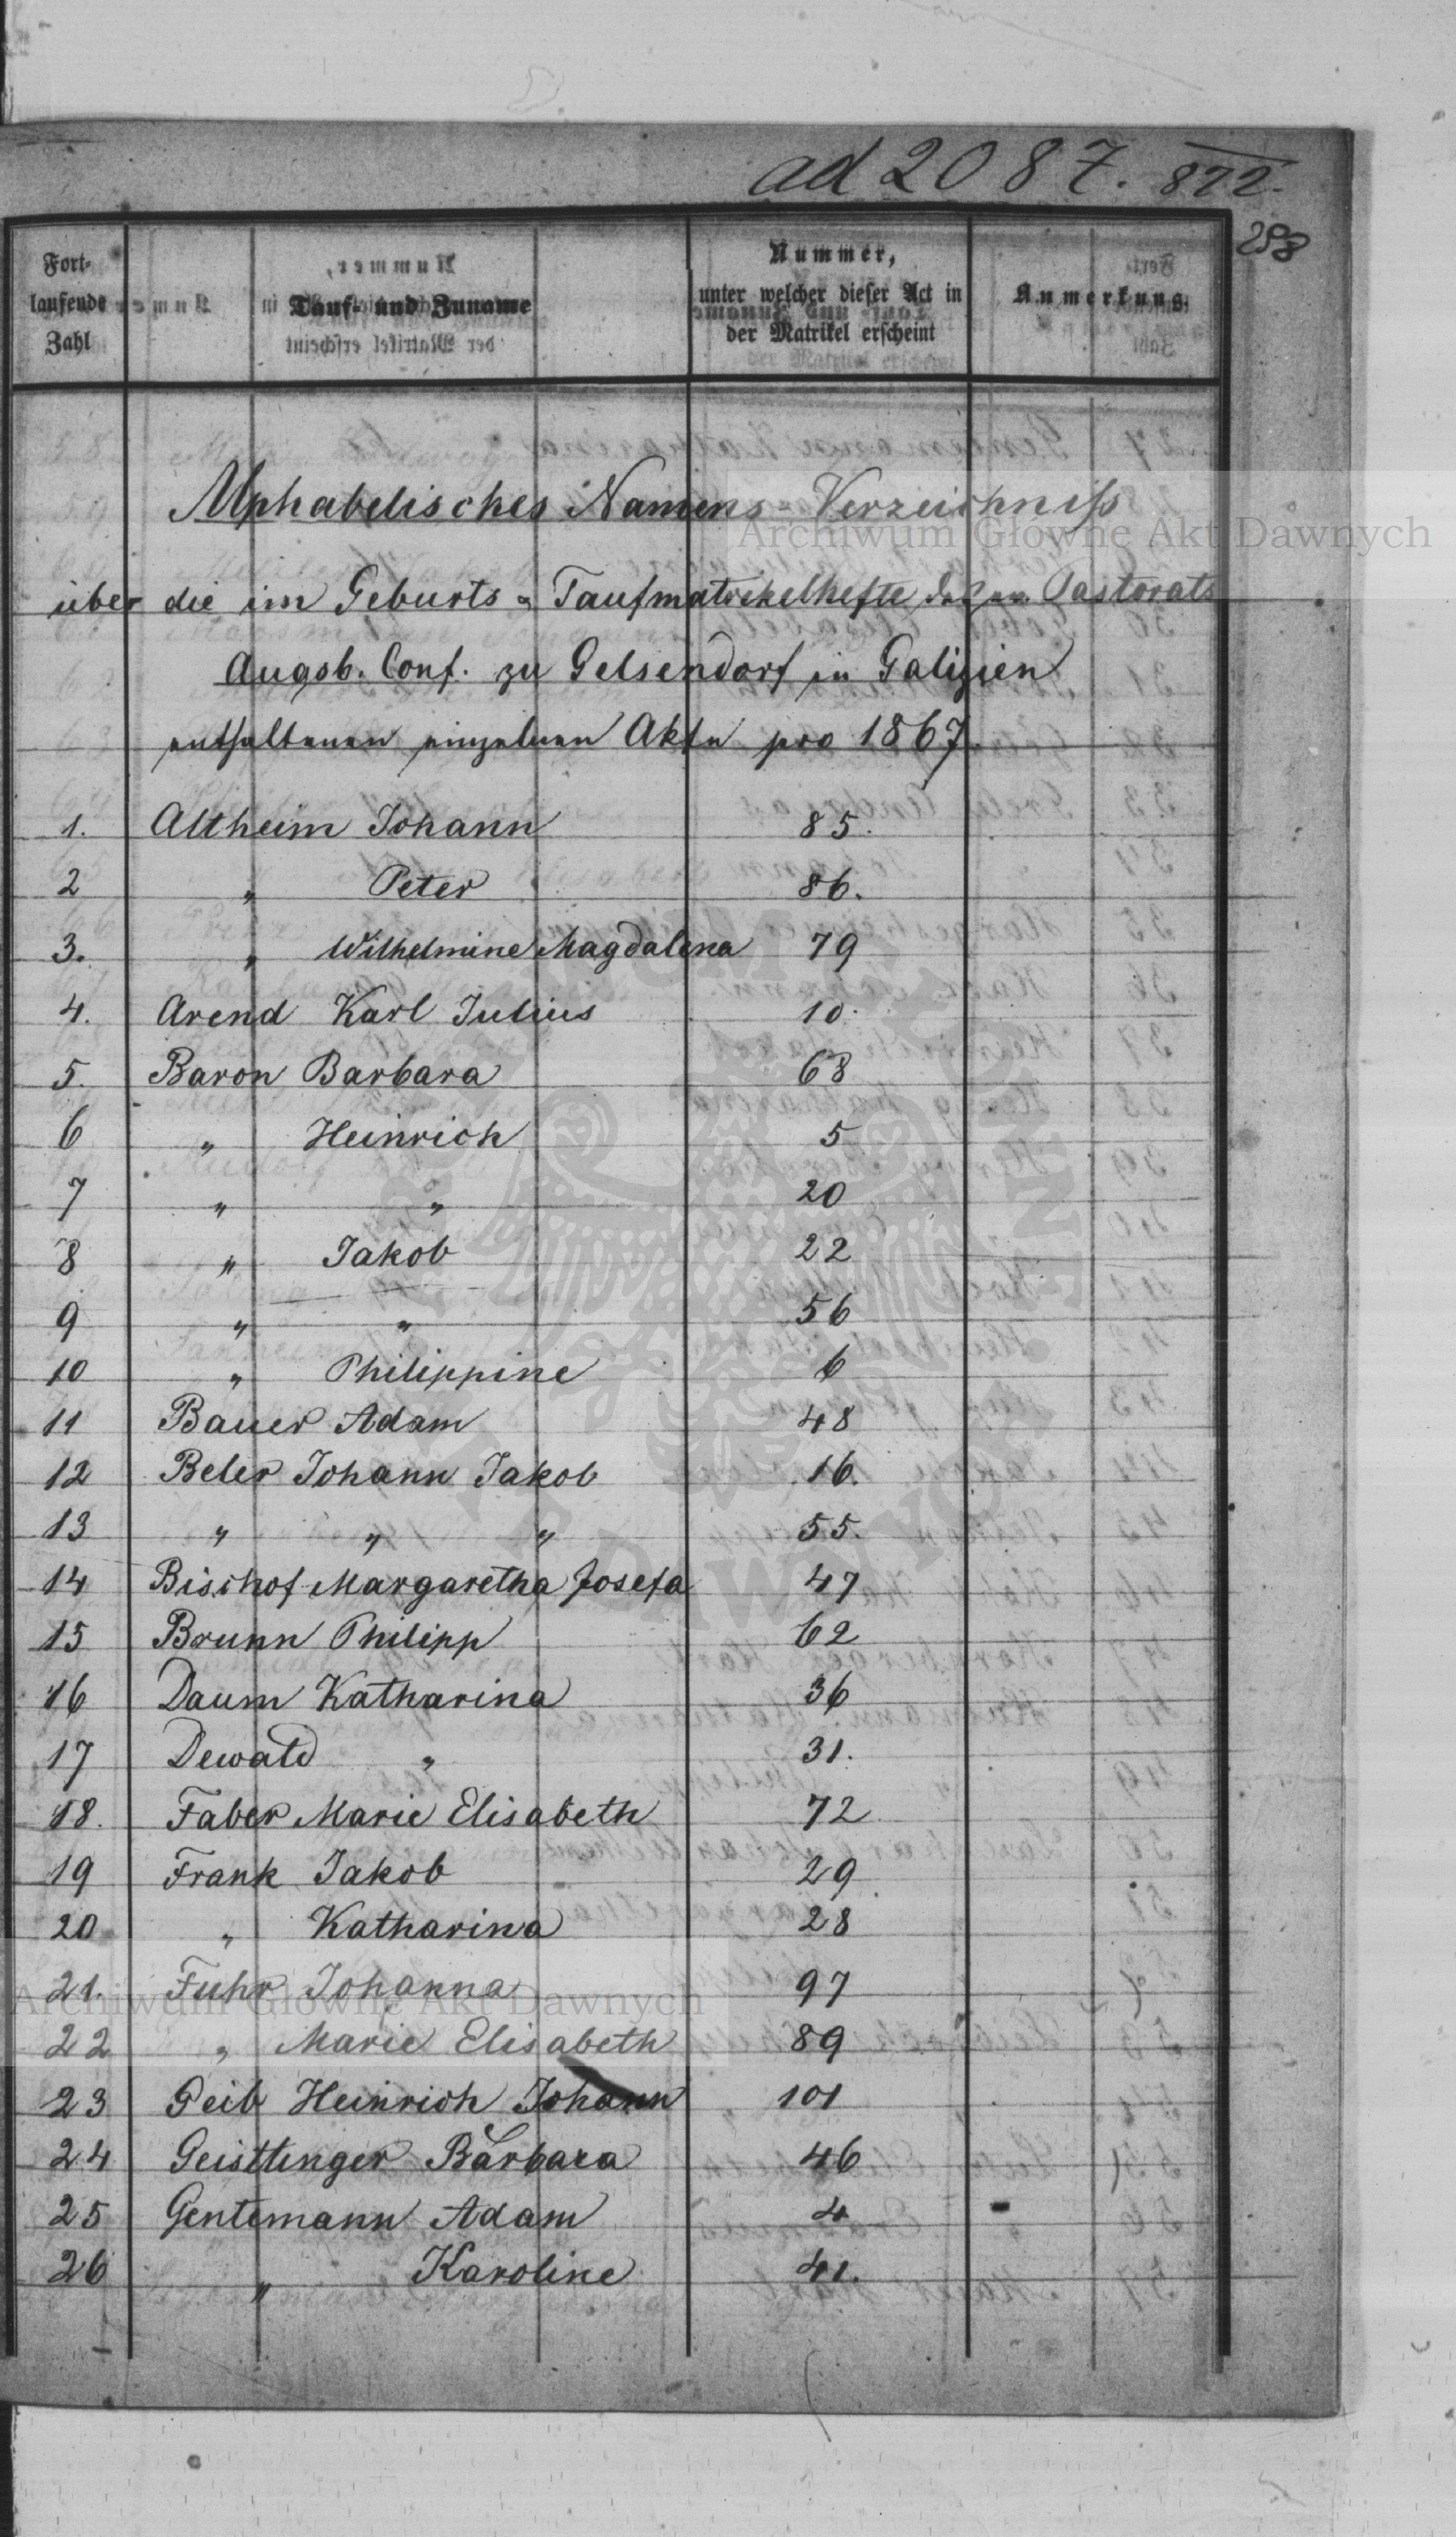 ad 2087. 872.
258
Fort-
laufende
Zahl
Tauf- und Zuname
Nummer,
unter welcher dieser Act in
der Matrikel erscheint
Anmerkung.
Alphabetisches Namens-Verzeichniß
über die im Geburts- Taufmatrikelhefte des ev. Pastorats
Augsb. Conf. zu Gelsendorf in Galizien
enthaltenen einzelnen Akte pro 1867.
1. Altheim Johann 85.
2 " Peter 86.
3. " Wilhelmine Magdalena 79
4. Arend Karl Julius 10.
5. Baron Barbara 68
6 " Heinrich 5
7 " " 20
8 " Jakob 22
9 " " 56
10 " Philippine 6
11 Bauer Adam 48
12 Beler Johann Jakob 16.
13 " " " 55.
14 Bischof Margaretha Josefa 47
15 Brunn Philipp 62
16 Daum Katharina 36
17 Dewald " 31.
18. Faber Marie Elisabeth 72
19 Frank Jakob 29
20 " Katharina 28
21. Fuhr Johanna 97
22 " Marie Elisabeth 89
23 Geib Heinrich Johann 101
24 Geistlinger Barbara 46
25 Gentemann Adam 4
26 " Karoline 41.
Archiwum Główne Akt Dawnych
Archiwum Główne Akt Dawnych